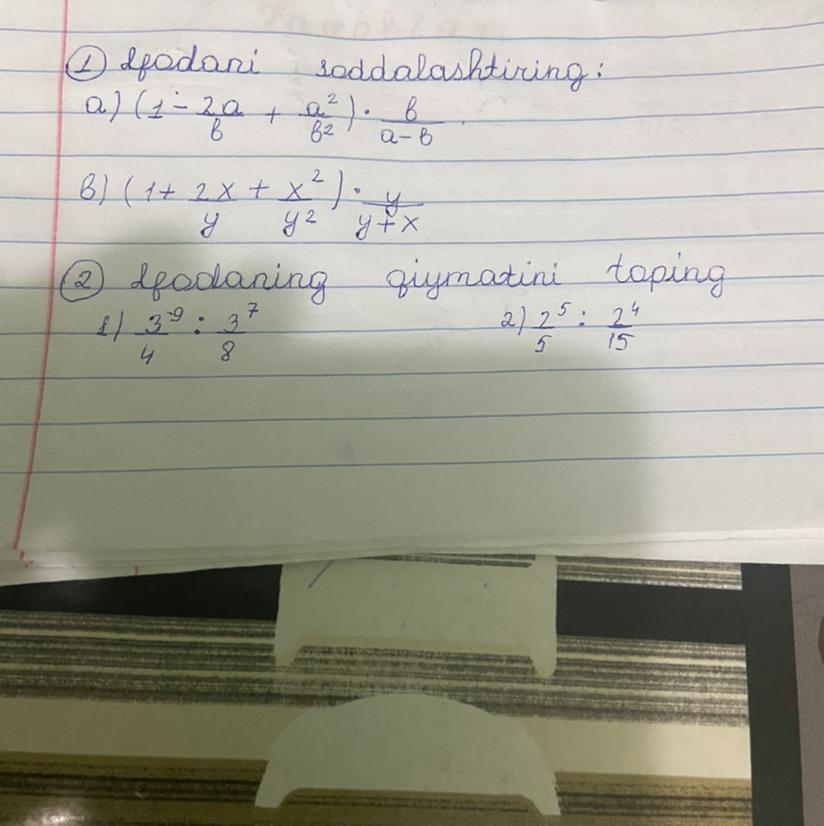 ① Ifodani soddalashtiring:
a) (1 - 2a/b + a²/b²) · b/(a-b)
b) (1 + 2x/y + x²/y²) · y/(y+x)
② Ifodaning qiymatini toping
1) 3⁻⁹/4 : 3⁷/8 2) 2⁵/5 : 2⁴/15